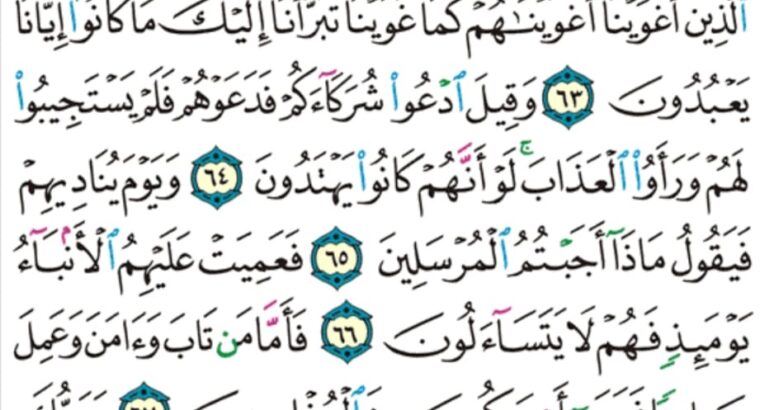 ٱلَّذِينَ أَغْوَيْنَآ أَغْوَيْنَٰهُمْ كَمَا غَوَيْنَا تَبَرَّأْنَآ إِلَيْكَ مَا كَانُوٓا۟ إِيَّانَا
يَعْبُدُونَ ٦٣ وَقِيلَ ٱدْعُوا۟ شُرَكَآءَكُمْ فَدَعَوْهُمْ فَلَمْ يَسْتَجِيبُوا۟
لَهُمْ وَرَأَوُا۟ ٱلْعَذَابَ ۚ لَوْ أَنَّهُمْ كَانُوا۟ يَهْتَدُونَ ٦٤ وَيَوْمَ يُنَادِيهِمْ
فَيَقُولُ مَاذَآ أَجَبْتُمُ ٱلْمُرْسَلِينَ ٦٥ فَعَمِيَتْ عَلَيْهِمُ ٱلْأَنۢبَآءُ
يَوْمَئِذٍ فَهُمْ لَا يَتَسَآءَلُونَ ٦٦ فَأَمَّا مَن تَابَ وَءَامَنَ وَعَمِلَ